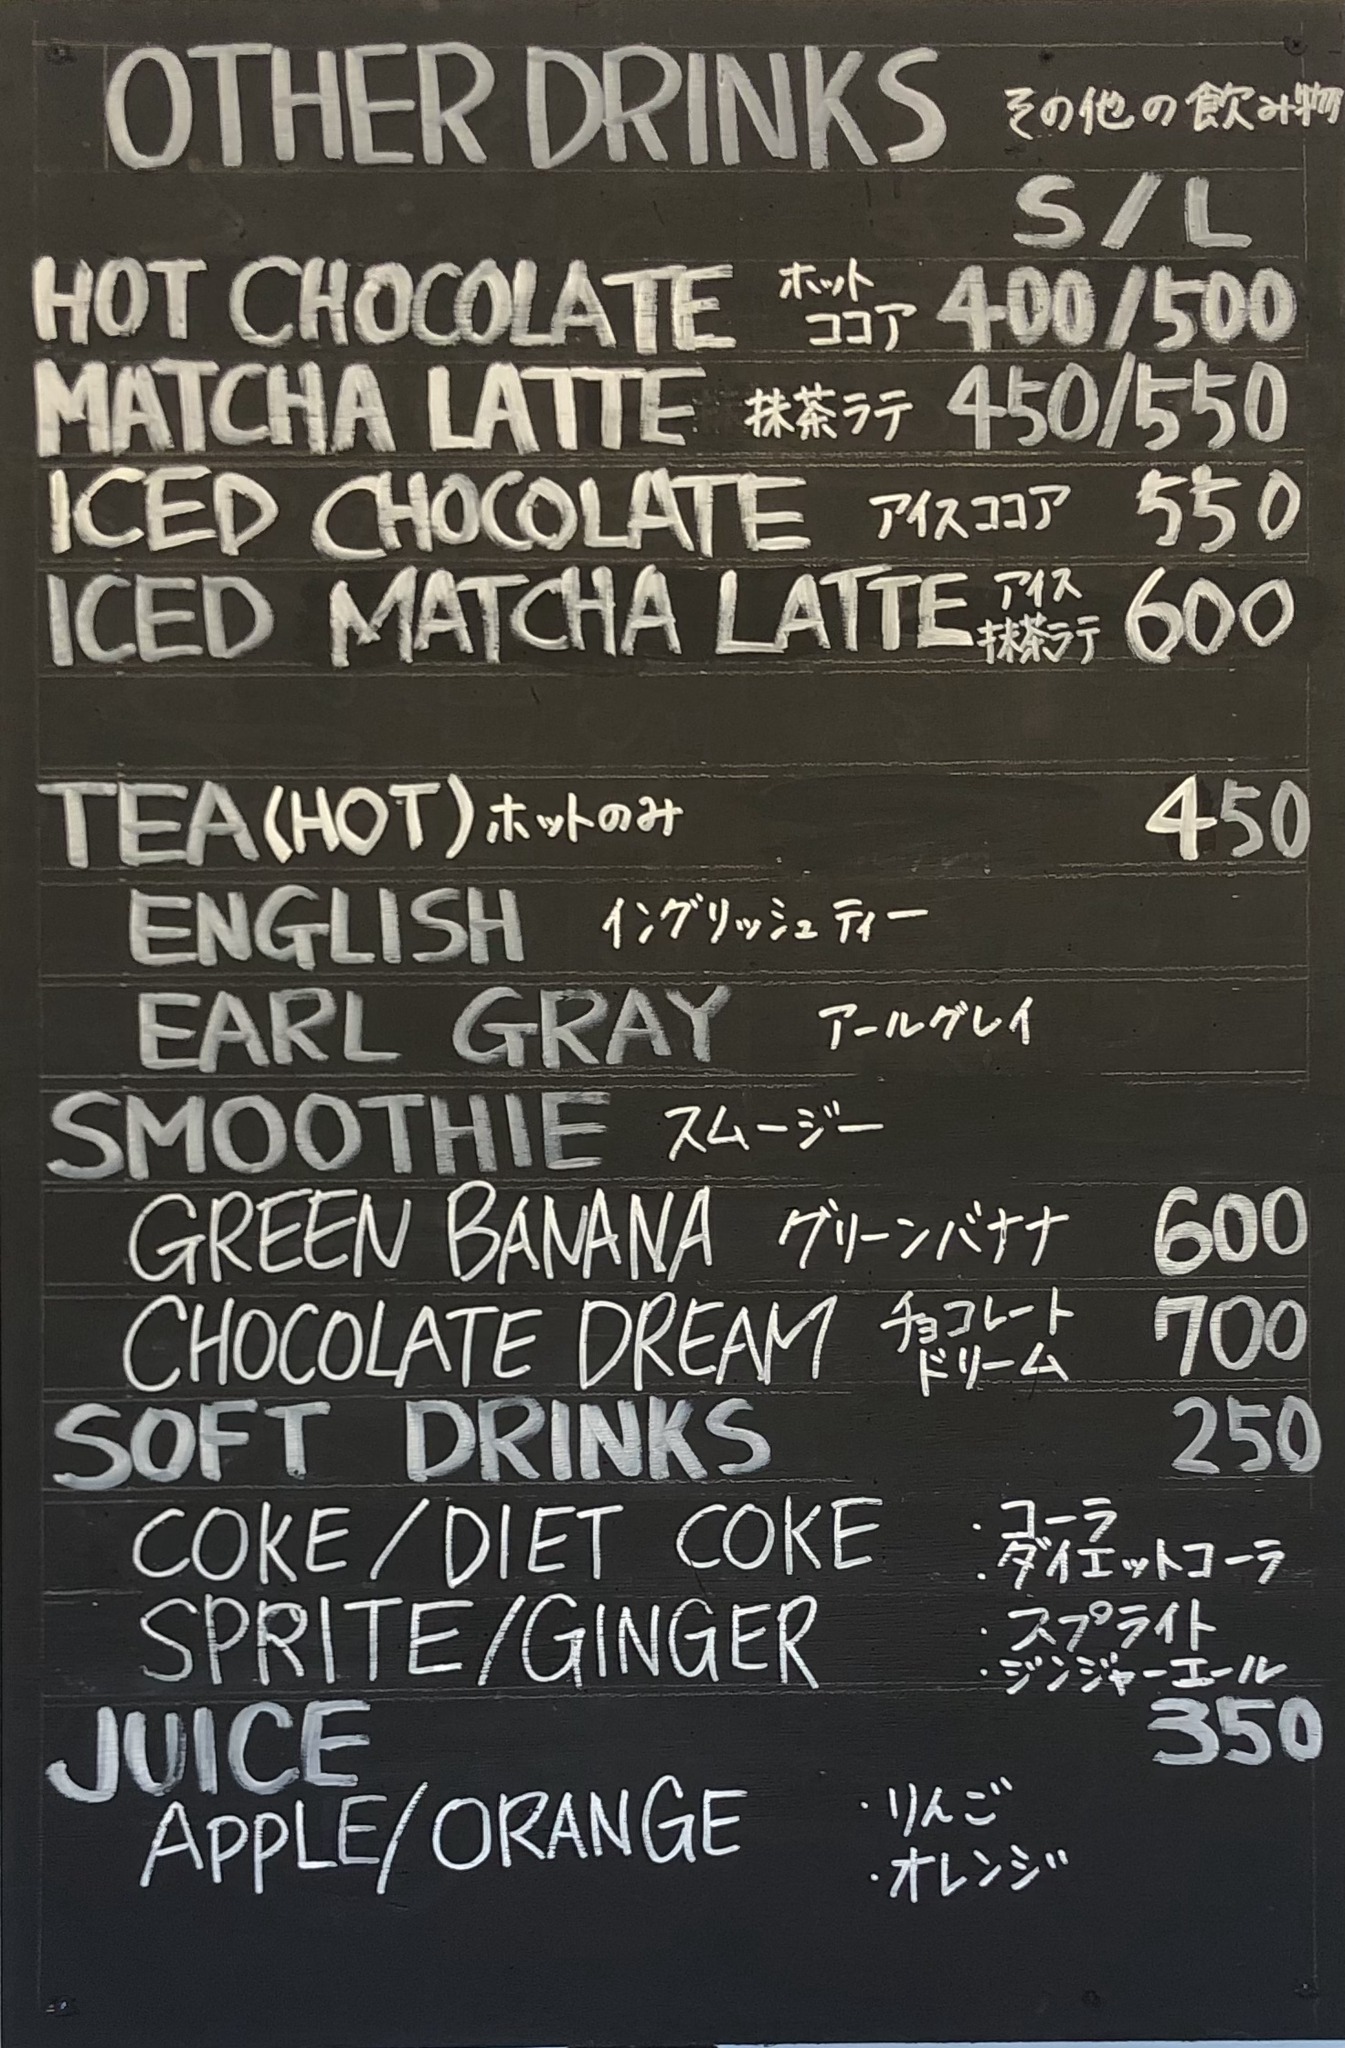 OTHER DRINKS その他の飲み物
S/L
HOT CHOCOLATE ホットココア 400/500
MATCHA LATTE 抹茶ラテ 450/550
ICED CHOCOLATE アイスココア 550
ICED MATCHA LATTE アイス抹茶ラテ 600
TEA (HOT) ホットのみ 450
ENGLISH イングリッシュティー
EARL GRAY アールグレイ
SMOOTHIE スムージー
GREEN BANANA グリーンバナナ 600
CHOCOLATE DREAM チョコレートドリーム 700
SOFT DRINKS 250
COKE/DIET COKE ・コーラ
・ダイエットコーラ
SPRITE/GINGER ・スプライト
・ジンジャーエール
JUICE 350
APPLE/ORANGE ・りんご
・オレンジ